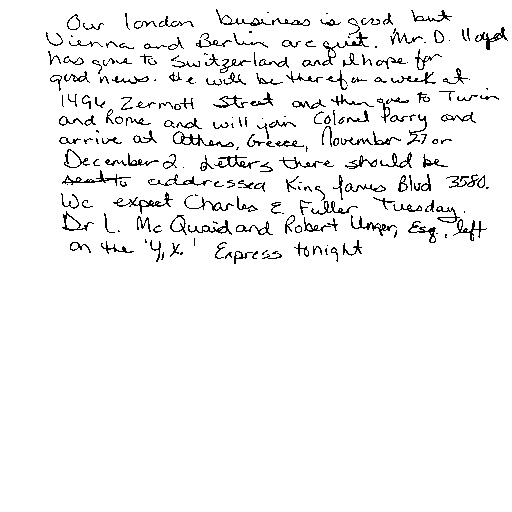 Our london business is good but
Vienna and Berlin are quiet. Mr. D. lloyd
has gone to Switzerland and I hope for
good news. He will be there for a week at
1496 Zermott Street and then goes to Turin
and Rome and will join Colonel Parry and
arrive at Athens, Greece, November 27 or
December 2. Letters there should be
addressed King James Blvd 3580.
We expect Charles E. Fuller Tuesday.
Dr L. McQuaid and Robert Unger, Esq., left
on the 'Y.X.' Express tonight